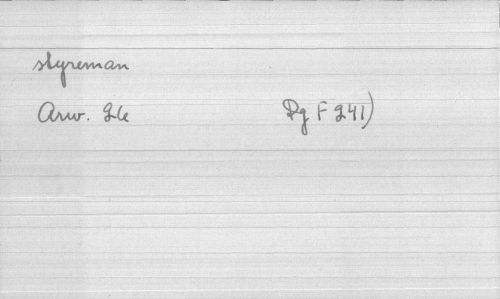 styreman
Arw. 26 Dg F 241)